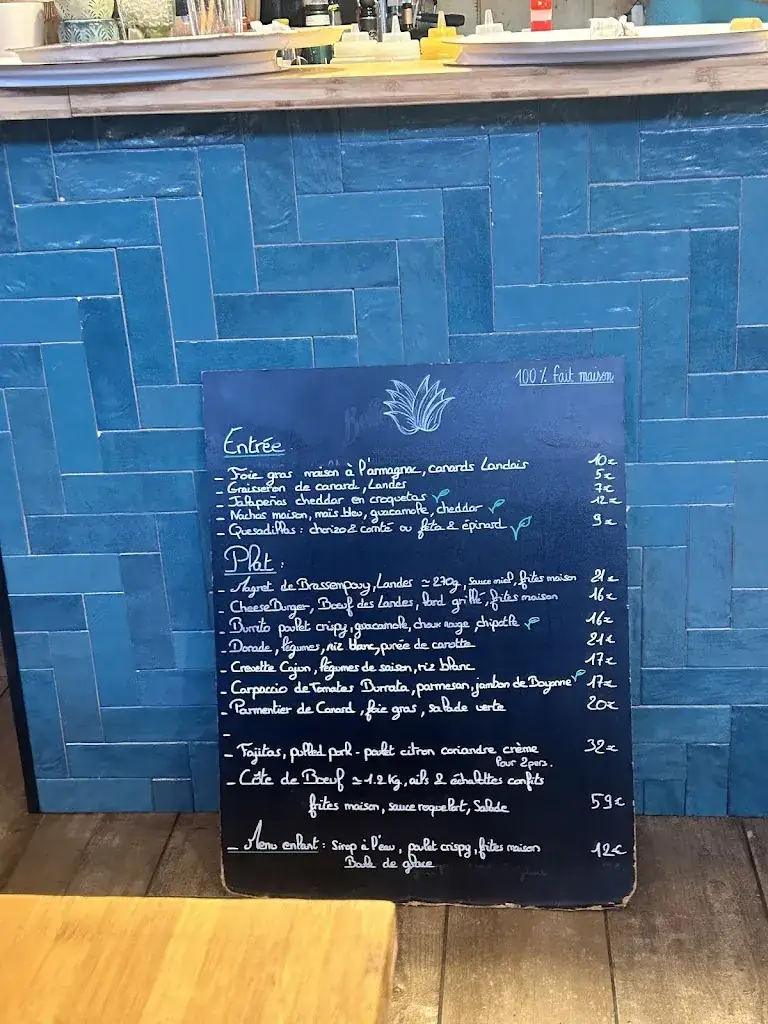 100% fait maison
Entrée
- Foie gras maison à l'armagnac, canards Landais 10€
- Graisseron de canard, Landes 5€
- Jalapeños cheddar en croquetas 7€
- Nachos maison, maïs bleu, guacamole, cheddar 12€
- Quesadillas : chorizo & comté ou feta & épinard 9€
Plat :
- Magret de Brassempouy, Landes ≃ 270g, sauce miel, frites maison 21€
- CheeseBurger, Boeuf des Landes, lard grillé, frites maison 16€
- Burrito poulet crispy, guacamole, choux rouge, chipotle 16€
- Dorade, légumes, riz blanc, purée de carotte 21€
- Crevette Cajun, légumes de saison, riz blanc 17€
- Carpaccio de Tomates Burrata, parmesan, jambon de Bayonne 17€
- Parmentier de Canard, foie gras, salade verte 20€
-
- Fajitas, pulled pork - poulet citron coriandre crème 32€
Pour 2 pers.
- Côte de Boeuf ≃ 1.2 Kg, ails & échalottes confits
frites maison, sauce roquefort, Salade 59€
- Menu enfant : Sirop à l'eau, poulet crispy, frites maison 12€
Boule de glace